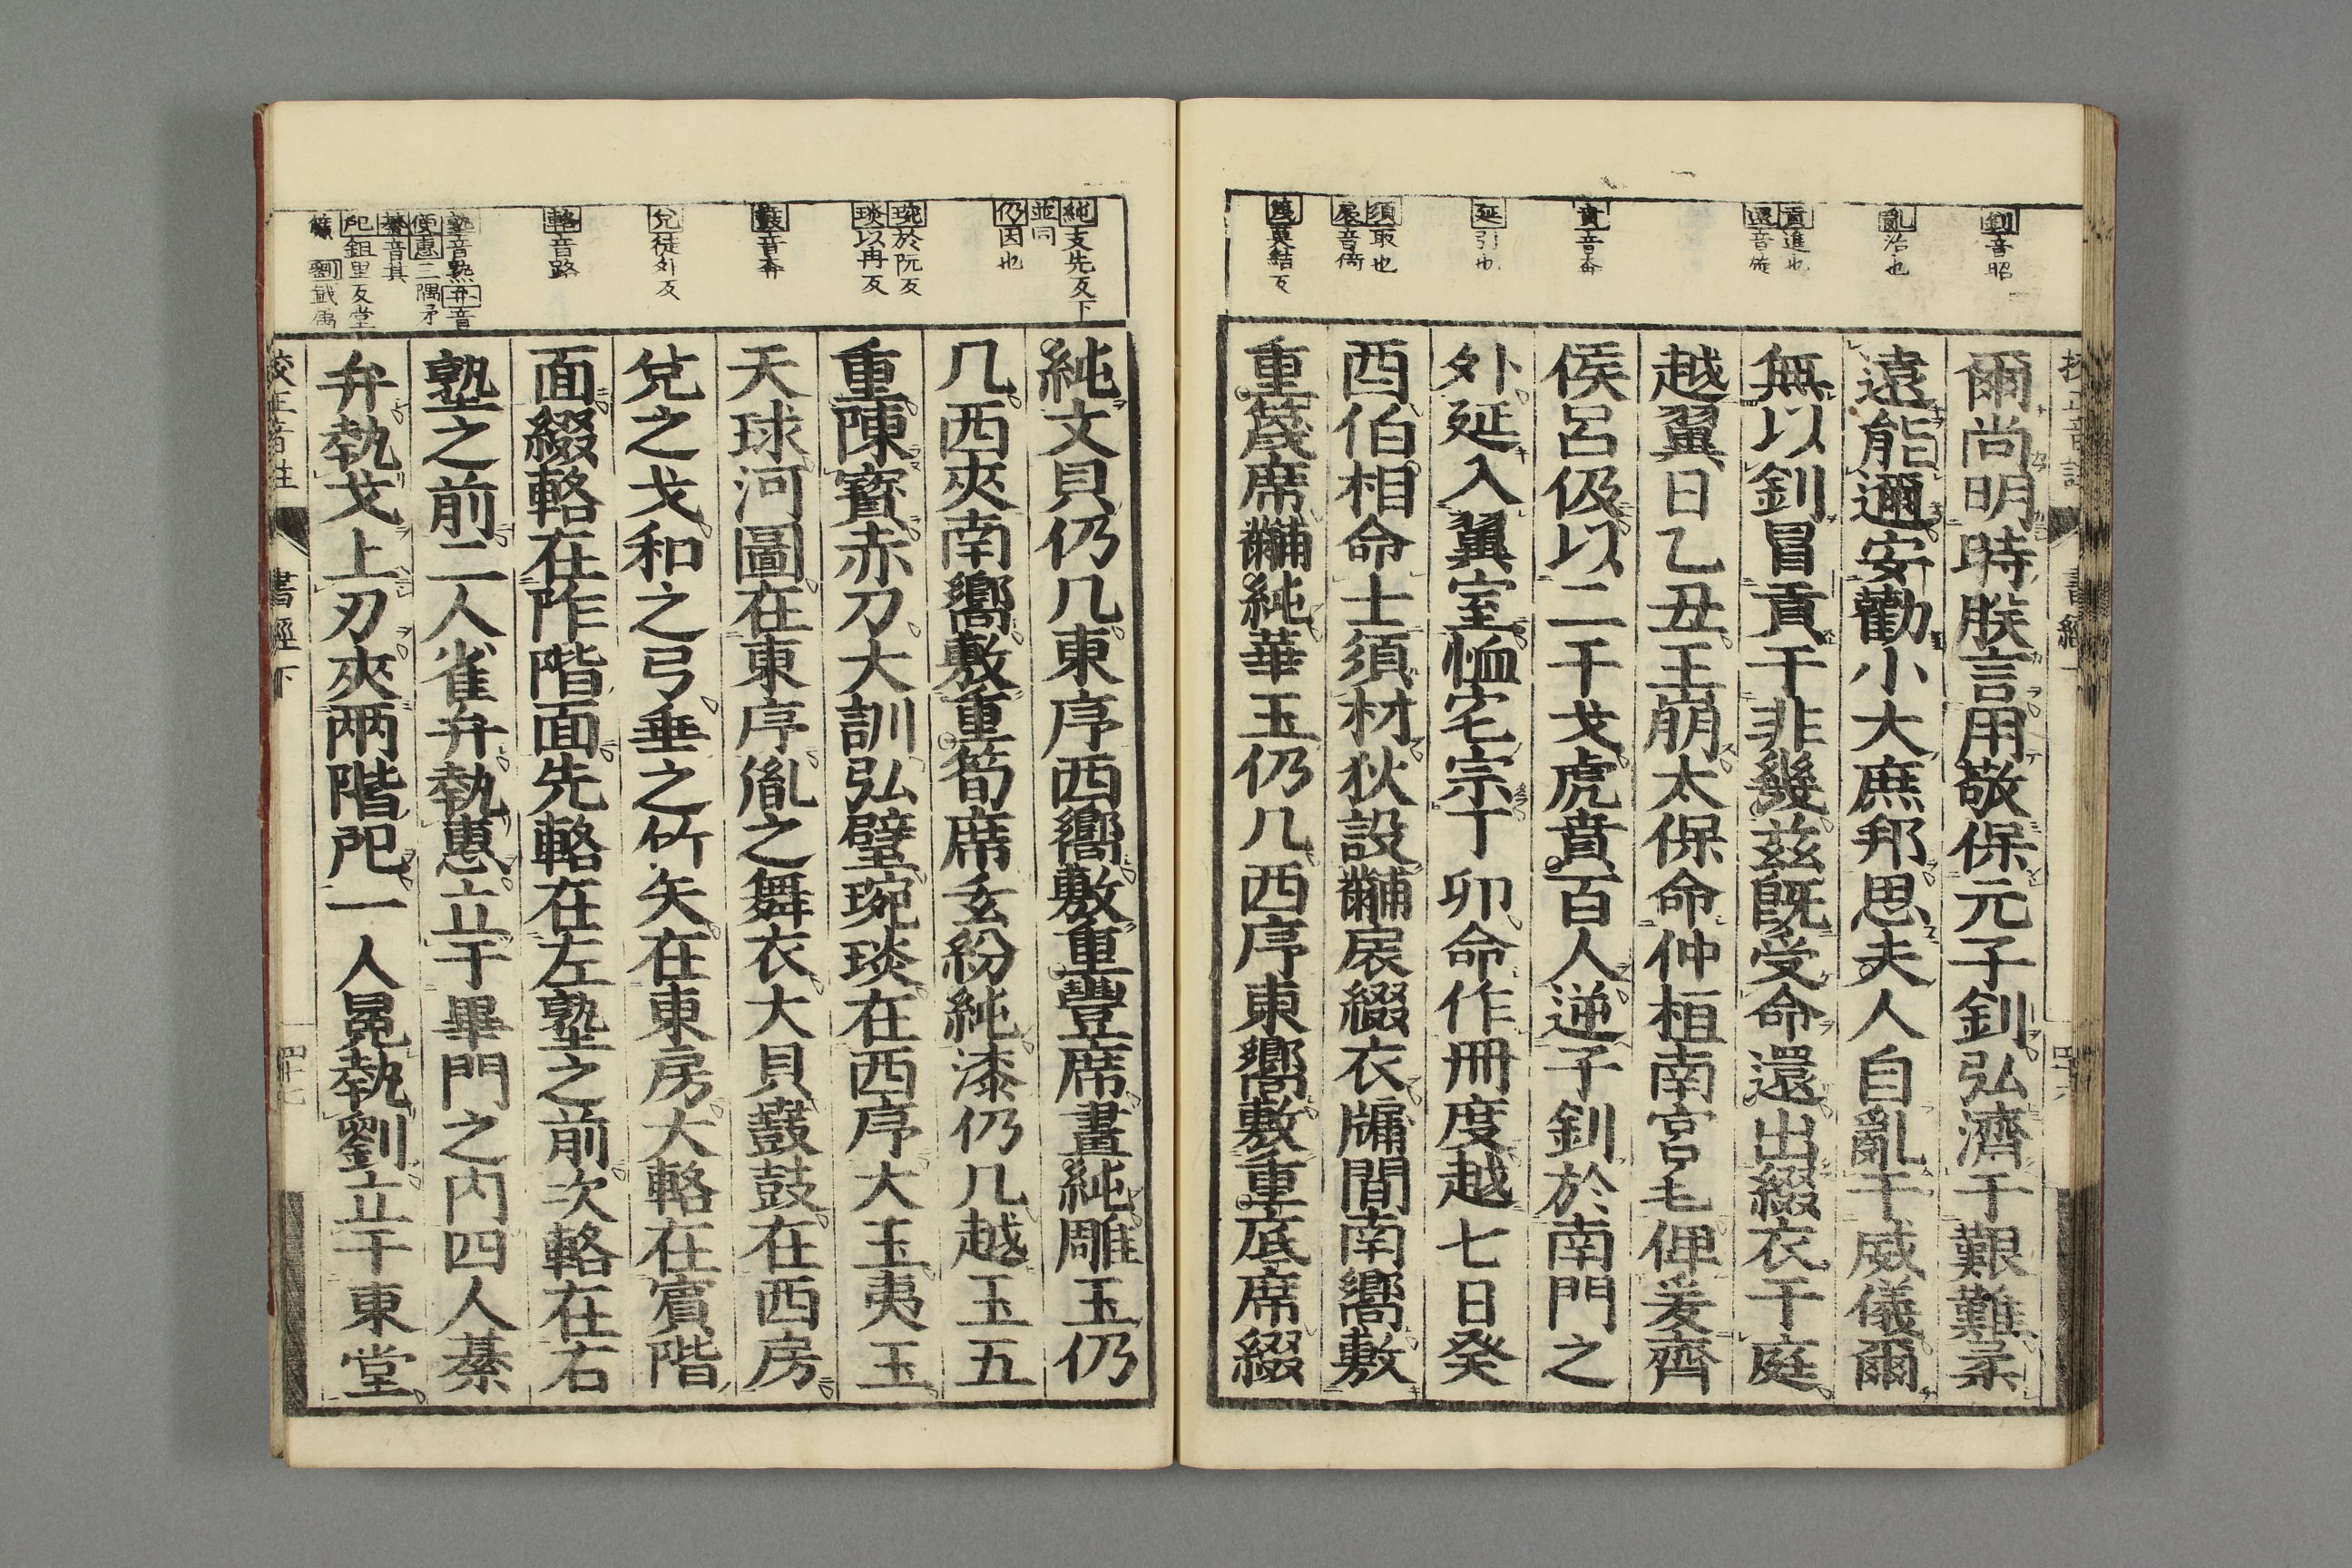 釗音昭
亂治也
貢進也
還音旋
賁音奔
延引也
須取也
扆音倚
篾眠結反
爾尚明時朕言用敬保元子釗弘濟于艱難柔
遠能邇安勸小大庶邦思夫人自亂于威儀爾
無以釗冒貢于非幾茲既受命還出綴衣于庭
越翼日乙丑王崩太保命仲桓南宮毛俾爰齊
侯呂伋以二干戈虎賁百人逆子釗於南門之
外延入翼室恤宅宗丁卯命作冊度越七日癸
酉伯相命士須材狄設黼扆綴衣牖間南嚮敷
重篾席黼純華玉仍几西序東嚮敷重底席綴
純支先反下
並同
仍因也
琬於阮反
琰以冉反
鼖音奔
兌徒外反
輅音路
塾音熟弁音
惠三隅矛
綦音其
戺鉏里反堂
劉鉞属
純文貝仍几東序西嚮敷重豐席畫純雕玉仍
几西夾南嚮敷重筍席玄紛純漆仍几越玉五
重陳寶赤刀大訓弘璧琬琰在西序大玉夷玉
天球河圖在東序胤之舞衣大貝鼖鼓在西房
兌之戈和之弓垂之竹矢在東房大輅在賓階
面綴輅在阼階面先輅在左塾之前次輅在右
塾之前二人雀弁執惠立于畢門之內四人綦
弁執戈上刃夾兩階戺一人冕執劉立于東堂
校正音註 書經下 四十七